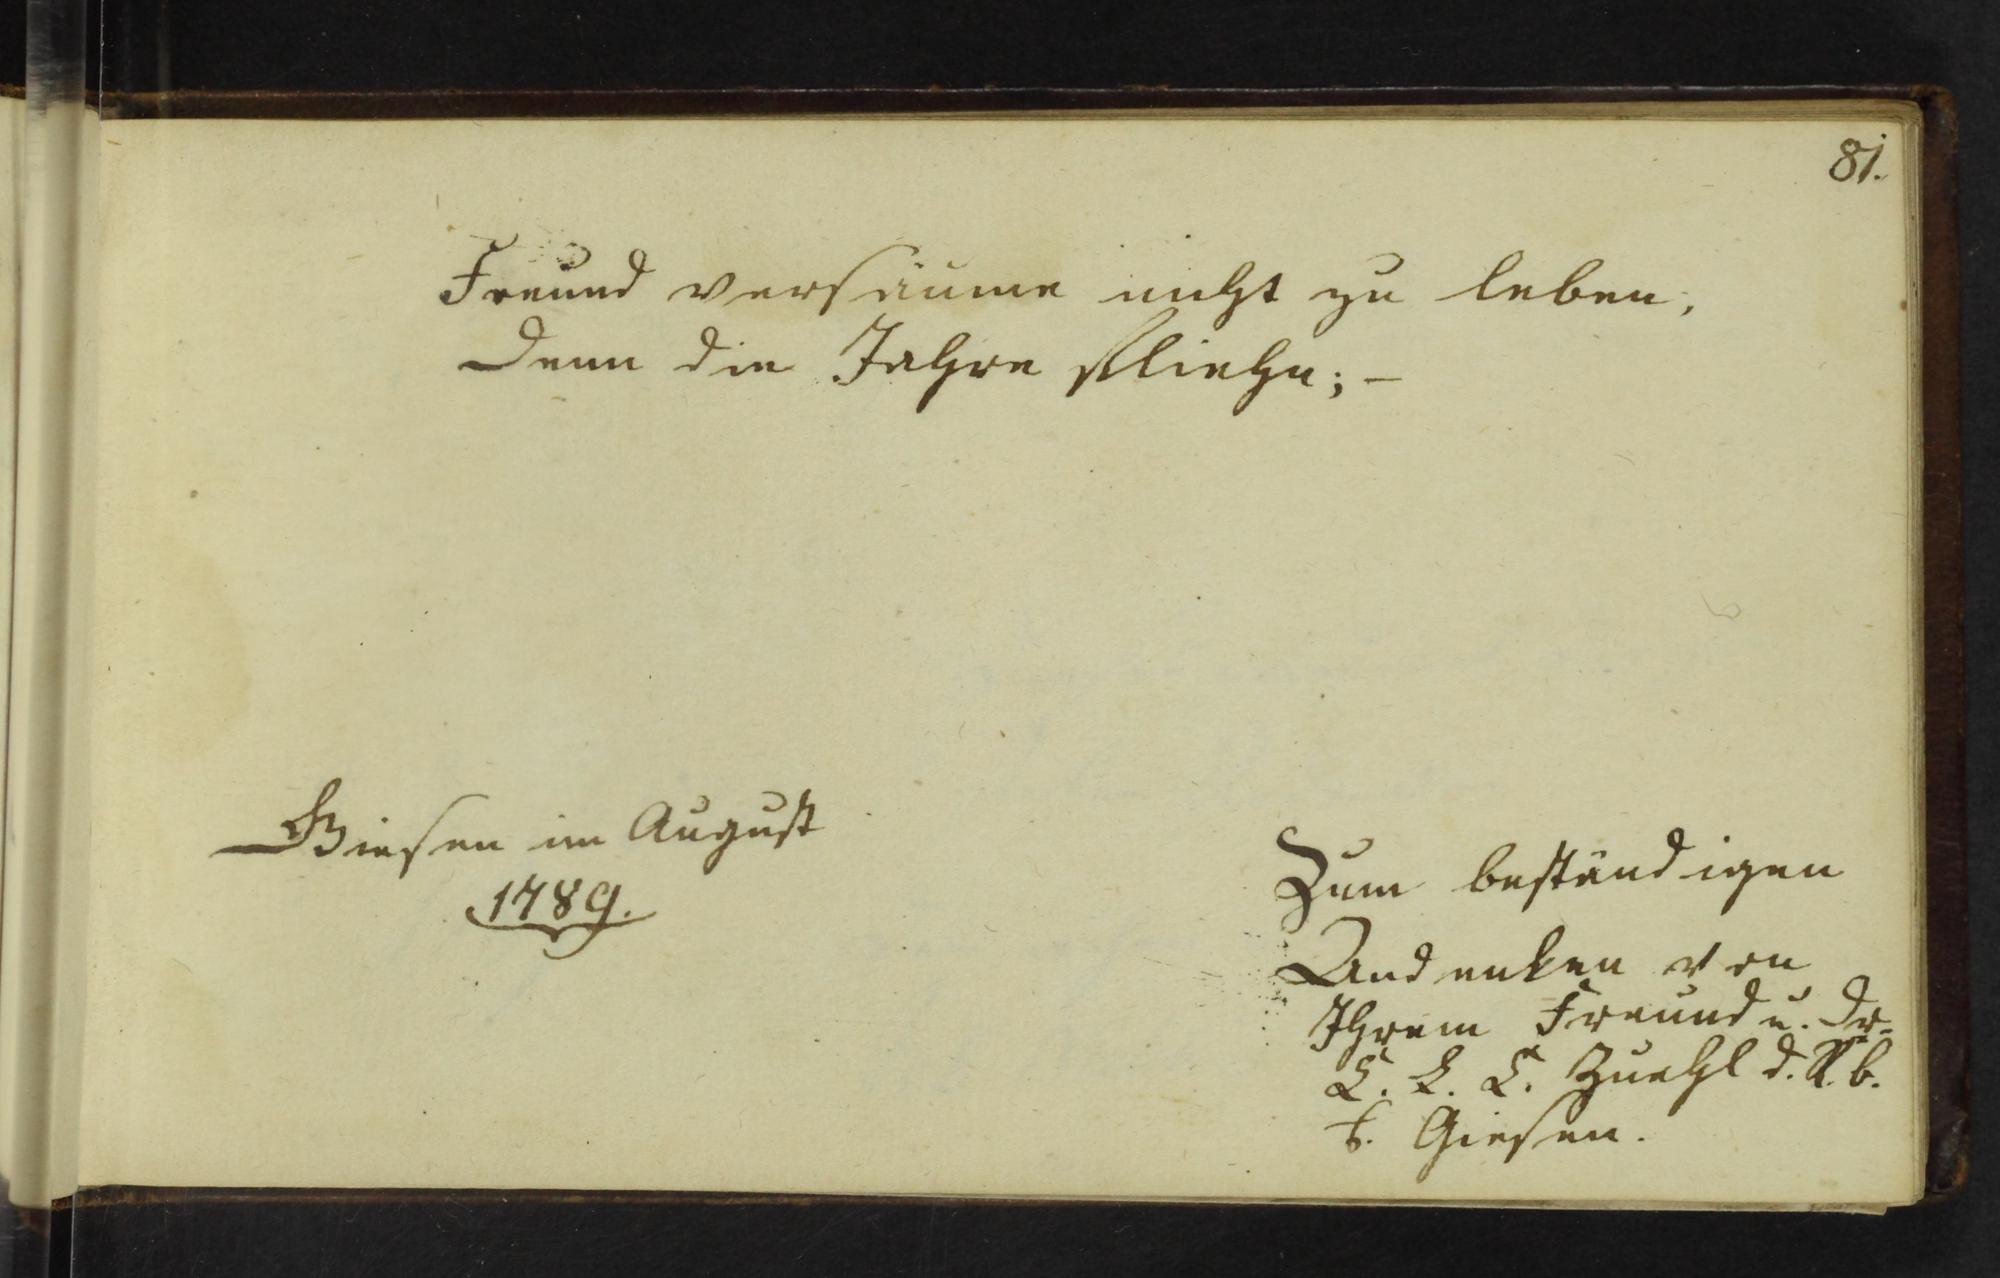 81.
Freund versäume nicht zu leben,
Denn die Jahre fliehn; –
Giesen im August
1789.
Zum beständigen
Andenken von
Ihrem Freund u. Dr.
L. L. L. Buehl d. R. b.
Giesen.